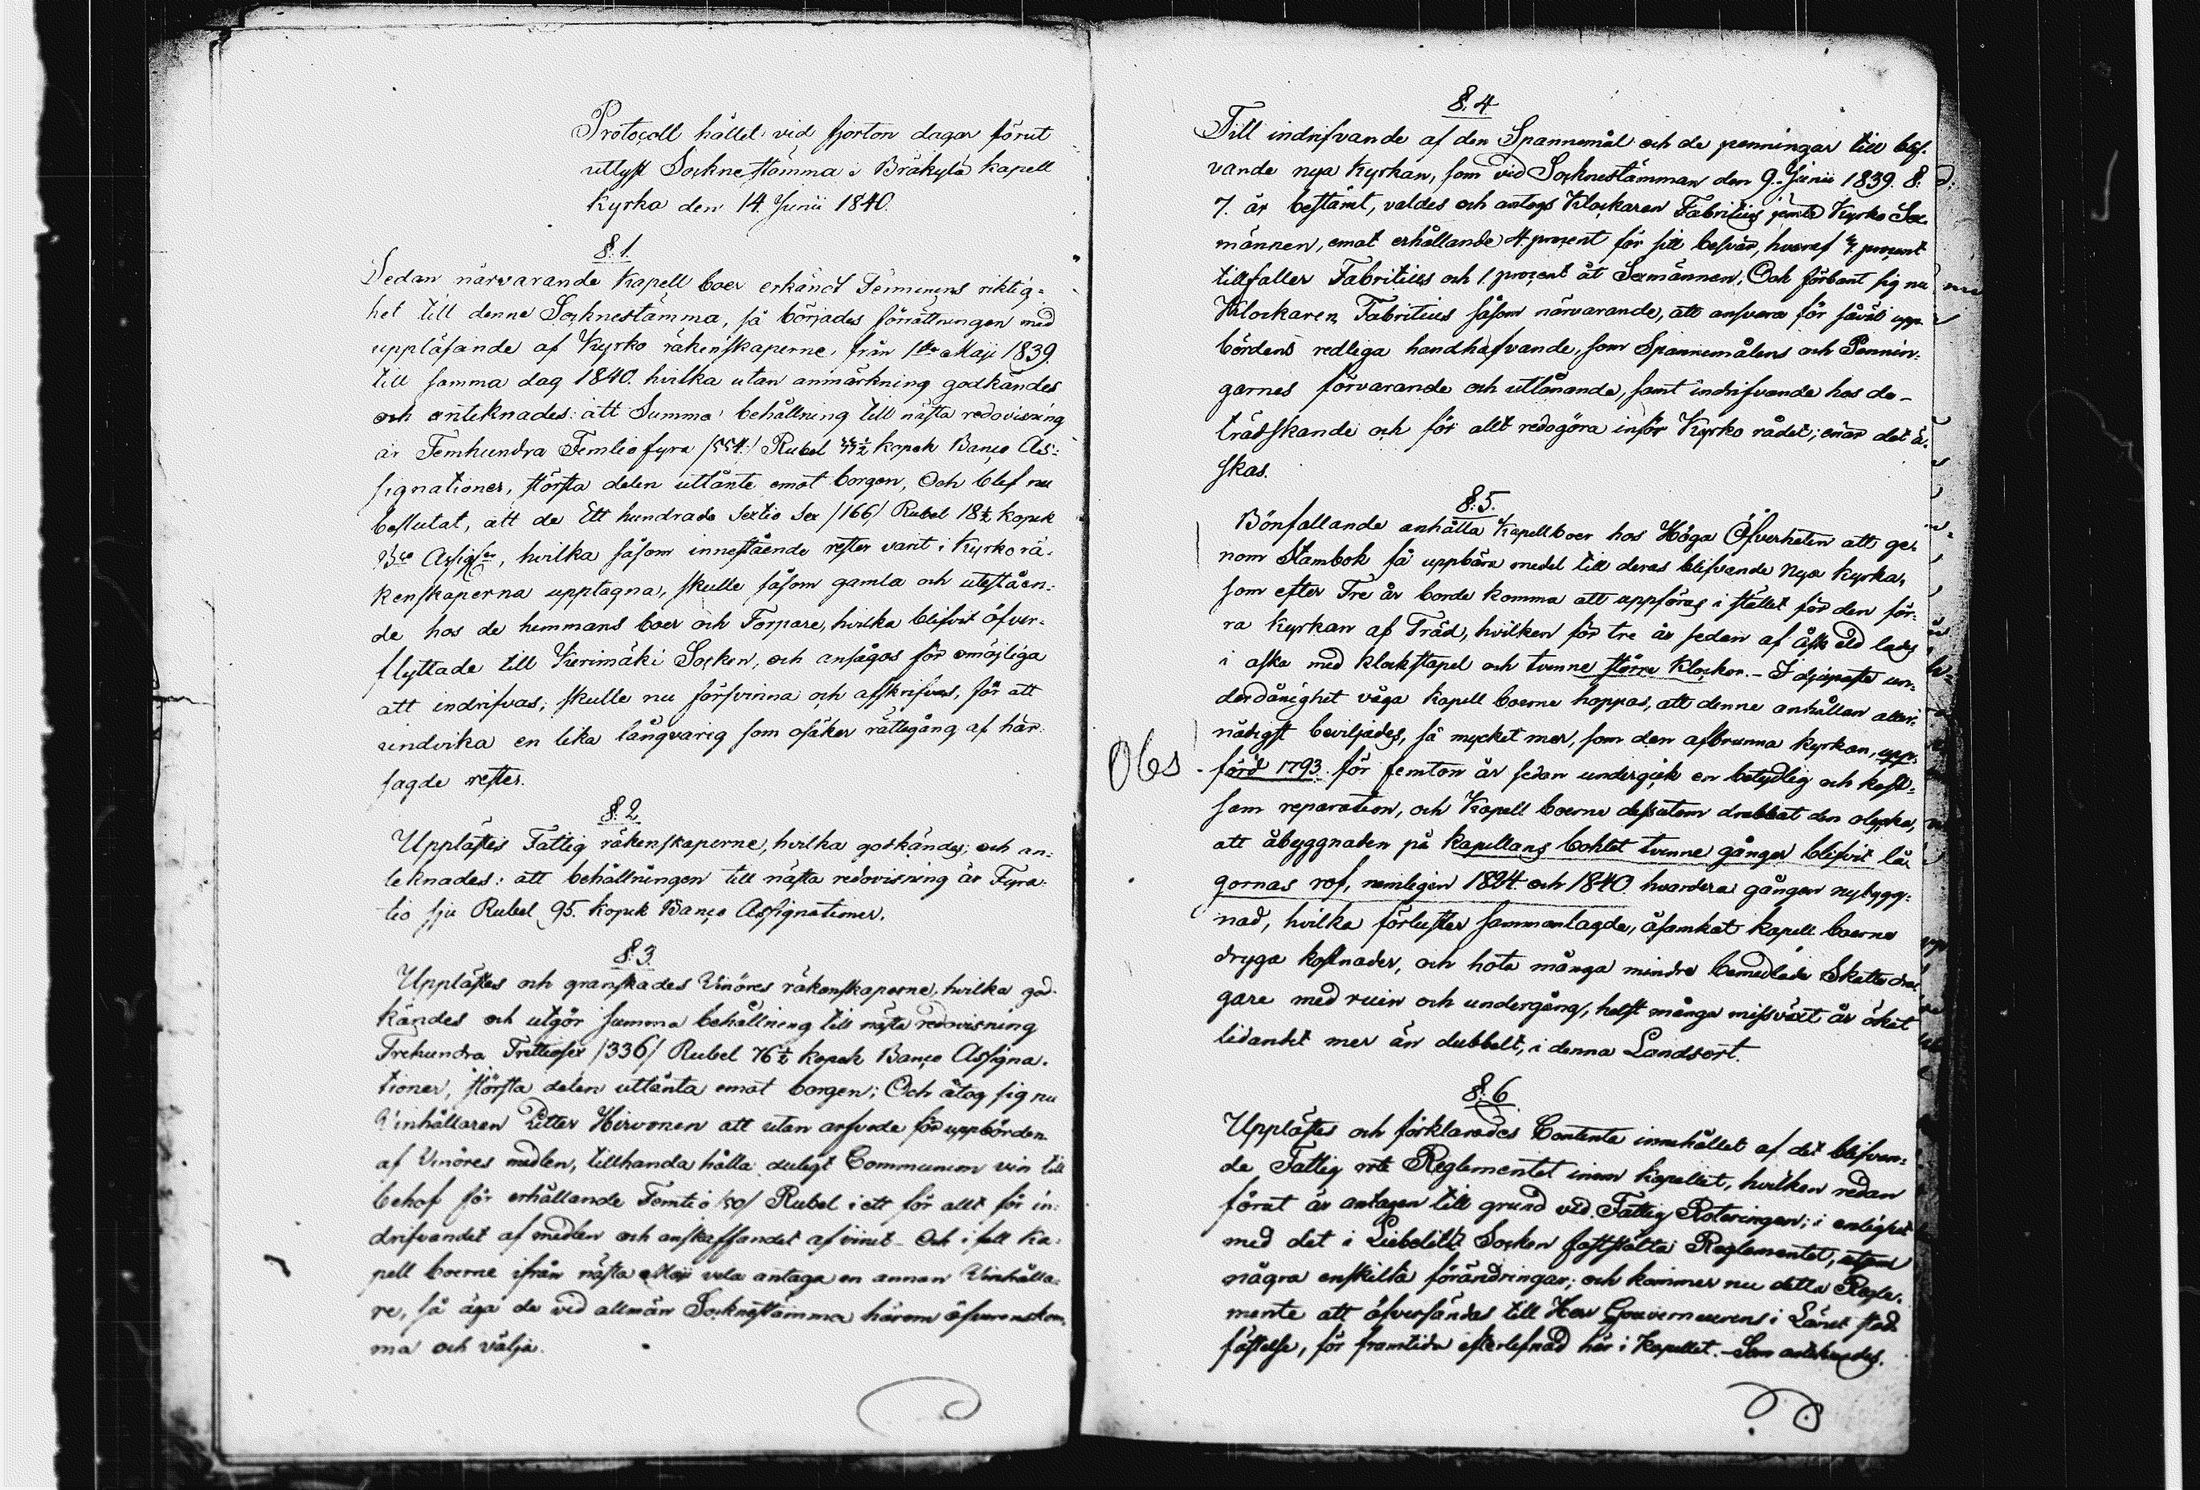 Protocoll hållet vid fjorton dagar förut
utlyst Sockne stämma i Bräkylä Kapell
Kyrka den 14. Junii 1840.
§. 1.
Sedan närvarande Kapell boer erkändt Terminens riktig-
het till denne Socknestämma, så börjades förrättningen med
uppläsande af Kyrko räkenskaperne, från 1sta Maji 1839
till samma dag 1840. hvilka utan anmärkning godkändes
och anteknades: att Summa behållning till nästa redovisning
är Femhundra Femtiofyra /554./ Rubel kopek Banco As-
signationer, största delen utlånte emot borgen, Och blef nu
beslutat, att de Ett hundrade Sextio Sex /166/ Rubel 18½ kopek
Bco Assigner, hvilka såsom innestående rester varit i Kyrko rä-
kenskaperna upptagna, skulle såsom gamla och utestäen-
de hos de hemmans boer och Torpare, hvilka blifvit öfver-
flyttade till Kerimäki Socken, och ansågos för omöjliga
att indrifvas, skulle nu försvinna och afskrifvas, för att
undvika en lika långvarig som osäker rättegång af här
sagde rester.
§. 2.
Upplästes Fattig räkenskaperne, hvilka godkändes; och an-
teknades: att behållningen till nästa redovisning är Fyra-
tio sju Rubel 95. kopek Banco Assignationer.
§. 3.
Upplästes och granskades Vinöres räkenskaperne, hvilka god-
kändes och utgör summa behållning till nästa redovisning
Trehundra Trettiosex /336/ Rubel 76½ kopek Banco Assigna-
tioner, största delen utlånta emot borgen; Och åtog sig nu
Vinhållaren Petter Hirvonen att utan arfvode för uppbörden
af Vinöres medlen, tillhanda hålla duligt Communion vin till
behof för erhållande Femtio /50/ Rubel i ett för allt för in-
drifvandet af medlen och anskaffandet af vinet – Och i fall Ka-
pell boerne ifrån nästa Maji vela antaga en annan Vinhålla-
re, så äga de vid allmän Socknestämma härom öfverenskom-
ma och välja.
§. 4
Till indrifvande af den Spannemål och de penningar till blif-
vande nya Kyrkan, som vid Socknestämman den 9. Junii 1839. §.
7. är bestämt, valdes och antogs Klockaren Fabritius jemte Kyrko Sex
männen, emot erhållande 4 procent för sitt besvär, hvaraf procent
tillfaller Fabritius och 1. procent åt Sexmännen; Och förbant sig nu
Klockaren Fabritius såsom närvarande, att ansvara för såväl upp
bördens redliga handhafvande, som Spannemålens och Pennin-
garnes förvarande och utlånande, samt indrifvande hos de
trädskande och för allt redogöra inför Kyrko rådet; enär det ä-
skas.
§. 5.
Bönfallande anhålla Kapellboer hos Höga Öfverheten att ge-
nom Stambok få uppbära medel till deras blifvande Nya Kyrka,
som efter Tre år borde komma att uppföras i stället för den för-
ra Kyrkan af Träd, hvilken för tre år sedan af Åsk eld lades
i aska med klockstapel och tvenne större Klockor. – I djupaste un-
derdånighet våga Kapell boerne hoppas, att denne anhållan aller-
nådigst beviljades, så mycket mer, som den afbrunna Kyrkan, upp-
Obs! förd 1793. för femton år sedan undergick en betydlig och kost-
sam reparation, och Kapell boerne dessutom drabbat den olycka,
att åbyggnaden på Kapellans bohlet tvenne gånger blifvit lå-
gornas rof, nemligen 1824 och 1840. hvardera gången nybygg-
nad, hvilka förluster sammanlagde, åsamkat Kapell boerne
dryga kostnader, och hota många mindre bemedlade Skatte dra-
gare med ruin och undergång, helst många missväxt år ökat
lidandet mer än dubbelt, i denna Landsort.
§. 6
Upplästes och förklarades Contenta innehållet af det blifvan-
de Fattig rote Reglementet inom kapellet, hvilken redan
förut är antagen till grund vid Fattig Roteringen; i enlighet
med det i Liebelitz Socken fastställta Reglementet, utom
några enskilta förändringar; och kommer nu detta Regle-
mente att öfversändas till Herr Gouverneurens i Länet stad-
fästelse, för framtida efterlefnad här i Kapellet. – Som anteknades.